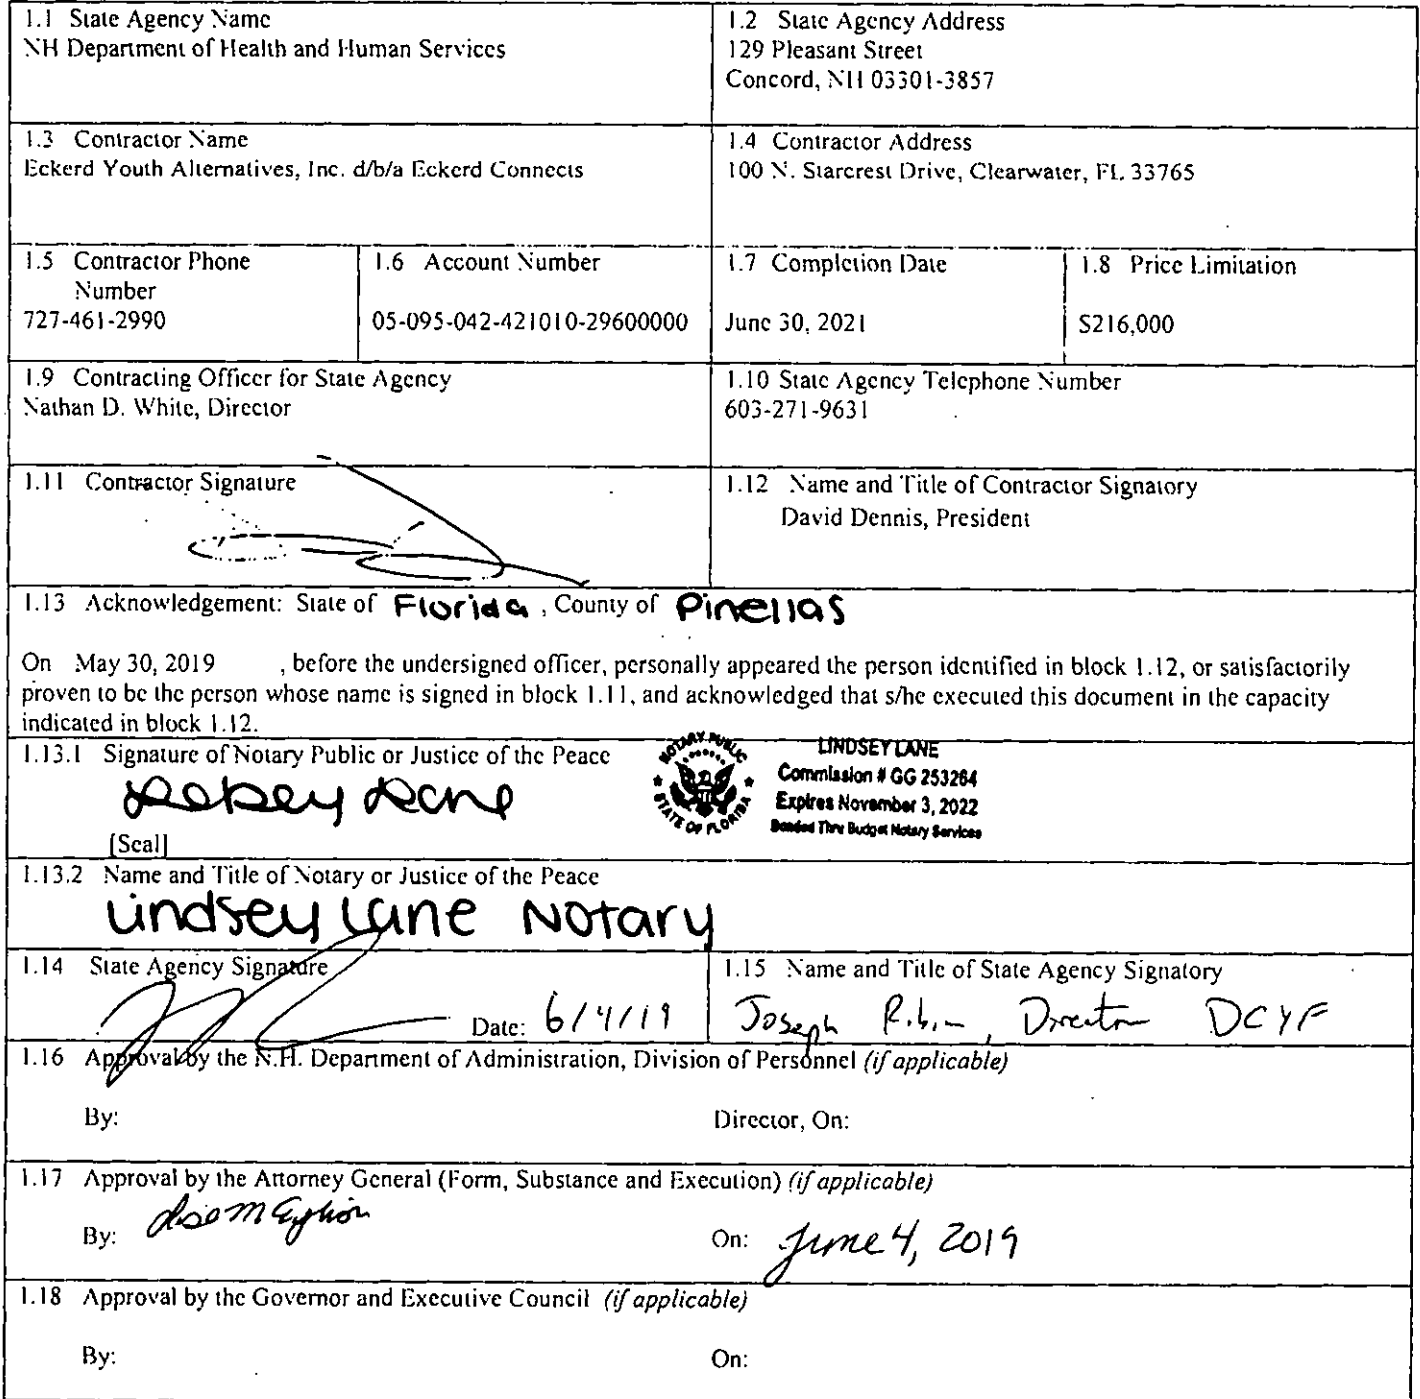 1.1 State Agency Name
NH Department of Health and Human Services
1.2 State Agency Address
129 Pleasant Street
Concord, NH 03301-3857
1.3 Contractor Name
Eckerd Youth Alternatives, Inc. d/b/a Eckerd Connects
1.4 Contractor Address
100 N. Starcrest Drive, Clearwater, FL 33765
1.5 Contractor Phone
Number
727-461-2990
1.6 Account Number
05-095-042-421010-29600000
1.7 Completion Date
June 30, 2021
1.8 Price Limitation
$216,000
1.9 Contracting Officer for State Agency
Nathan D. White, Director
1.10 State Agency Telephone Number
603-271-9631
1.11 Contractor Signature
1.12 Name and Title of Contractor Signatory
David Dennis, President
1.13 Acknowledgement: State of Florida, County of Pinellas
On May 30, 2019 , before the undersigned officer, personally appeared the person identified in block 1.12, or satisfactorily
proven to be the person whose name is signed in block 1.11, and acknowledged that s/he executed this document in the capacity
indicated in block 1.12.
1.13.1 Signature of Notary Public or Justice of the Peace
[Seal]
NOTARY PUBLIC
STATE OF FLORIDA
LINDSEY LANE
Commission # GG 253264
Expires November 3, 2022
Bonded Thru Budget Notary Services
1.13.2 Name and Title of Notary or Justice of the Peace
Lindsey Lane Notary
1.14 State Agency Signature
Date: 6/4/19
1.15 Name and Title of State Agency Signatory
Joseph Director DCYF
1.16 Approval by the N.H. Department of Administration, Division of Personnel (if applicable)
By: Director, On:
1.17 Approval by the Attorney General (Form, Substance and Execution) (if applicable)
By: On: June 4, 2019
1.18 Approval by the Governor and Executive Council (if applicable)
By: On: